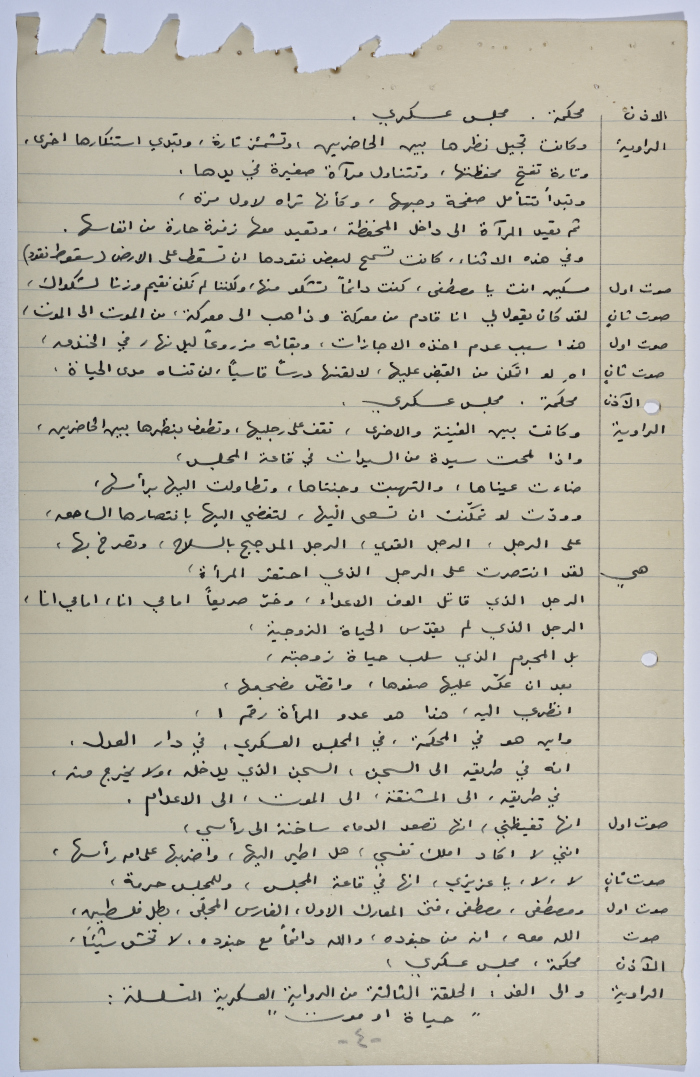 الاذن محكمة . مجلس عسكري .
الراوية وكانت تجيل نظرها بين الحاضرين ، وتشمئز تارة ، وتبدي استنكارها اخرى ،
وتارة تفتح محفظتها ، وتتناول مرآة صغيرة في يدها ،
وتبدأ تتأمل صفحة وجهها ، وكأنها تراه لاول مرة ،
ثم تعيد المرآة الى داخل المحفظة ، وتعيد معها زفرة حارة من انفاسها .
وفي هذه الاثناء ، كانت تسمح لبعض نقودها ان تسقط على الارض (سقوط نقود)
صوت اول مسكين انت يا مصطفى ، كنت دائماً تشكو منها ، ولكننا لم نكن نقيم وزنا لشكواك ،
صوت ثانٍ لقد كان يقول لي انا قادم من معركة وذاهب الى معركة ، من الموت الى الموت ،
صوت اول هذا سبب عدم اخذه الاجازات ، وبقائه مزروعاً ليل نهار ، في الخندق ،
صوت ثانٍ اهِ لو اتمكن من القبض عليها ، لالقنها درساً قاسياً ، لن تنساه مدى الحياة ،
الآذن محكمة . مجلس عسكري .
الراوية وكانت بين الفينة والاخرى ، تقف على رجليها ، وتطوف بنظرها بين الحاضرين ،
واذا لمحت سيدة من السيدات في قاعة المجلس ،
ضاءت عيناها ، والتهبت وجنتاها ، وتطاولت اليها برأسها ،
وودّت لو تمكّنت ان تسعى اليها ، لتفضي اليها بانتصارها الساحق ،
على الرجل ، الرجل القوي ، الرجل المدجج بالسلاح ، وتصرخ بها ،
هي لقد انتصرت على الرجل الذي احتقر المرأة ،
الرجل الذي قاتل الوف الاعداء ، وخرّ صريعاً امامي انا ، امامي انا ،
الرجل الذي لم يقدّس الحياة الزوجية ،
بل المجرم الذي سلب حياة زوجته ،
بعد ان عكّر عليها صفوها ، واقضّ مضجعها ،
انظري اليه ، هذا هو عدو المرأة رقم ١ ،
واين هو في المحكمة ، في المجلس العسكري ، في دار العدل ،
انه في طريقه الى السجن ، السجن الذي يدخله ، ولا يخرج منه ،
في طريقه ، الى المشنقة ، الى الموت ، الى الاعدام .
صوت اول انها تغيظني ، انها تصعد الدماء ساخنة الى رأسي ،
انني لا اكاد املك نفسي ، هل اطير اليها ، واضربها على ام رأسها ،
صوت ثانٍ لا ، لا ، يا عزيزي ، انها في قاعة المجلس ، وللمجلس حرمة ،
صوت اول ومصطفى ، مصطفى ، فتى المعارك الاول ، الفارس المجلّي ، بطل فلسطين ،
صوت الله معه ، انه من جنوده ، والله دائماً مع جنوده ، لا تخش شيئاً ،
الآذن محكمة ، مجلس عسكري ،
الراوية والى الغد ، الحلقة الثالثة من الرواية العسكرية المتسلسلة :
" حياة او موت "
-٤-